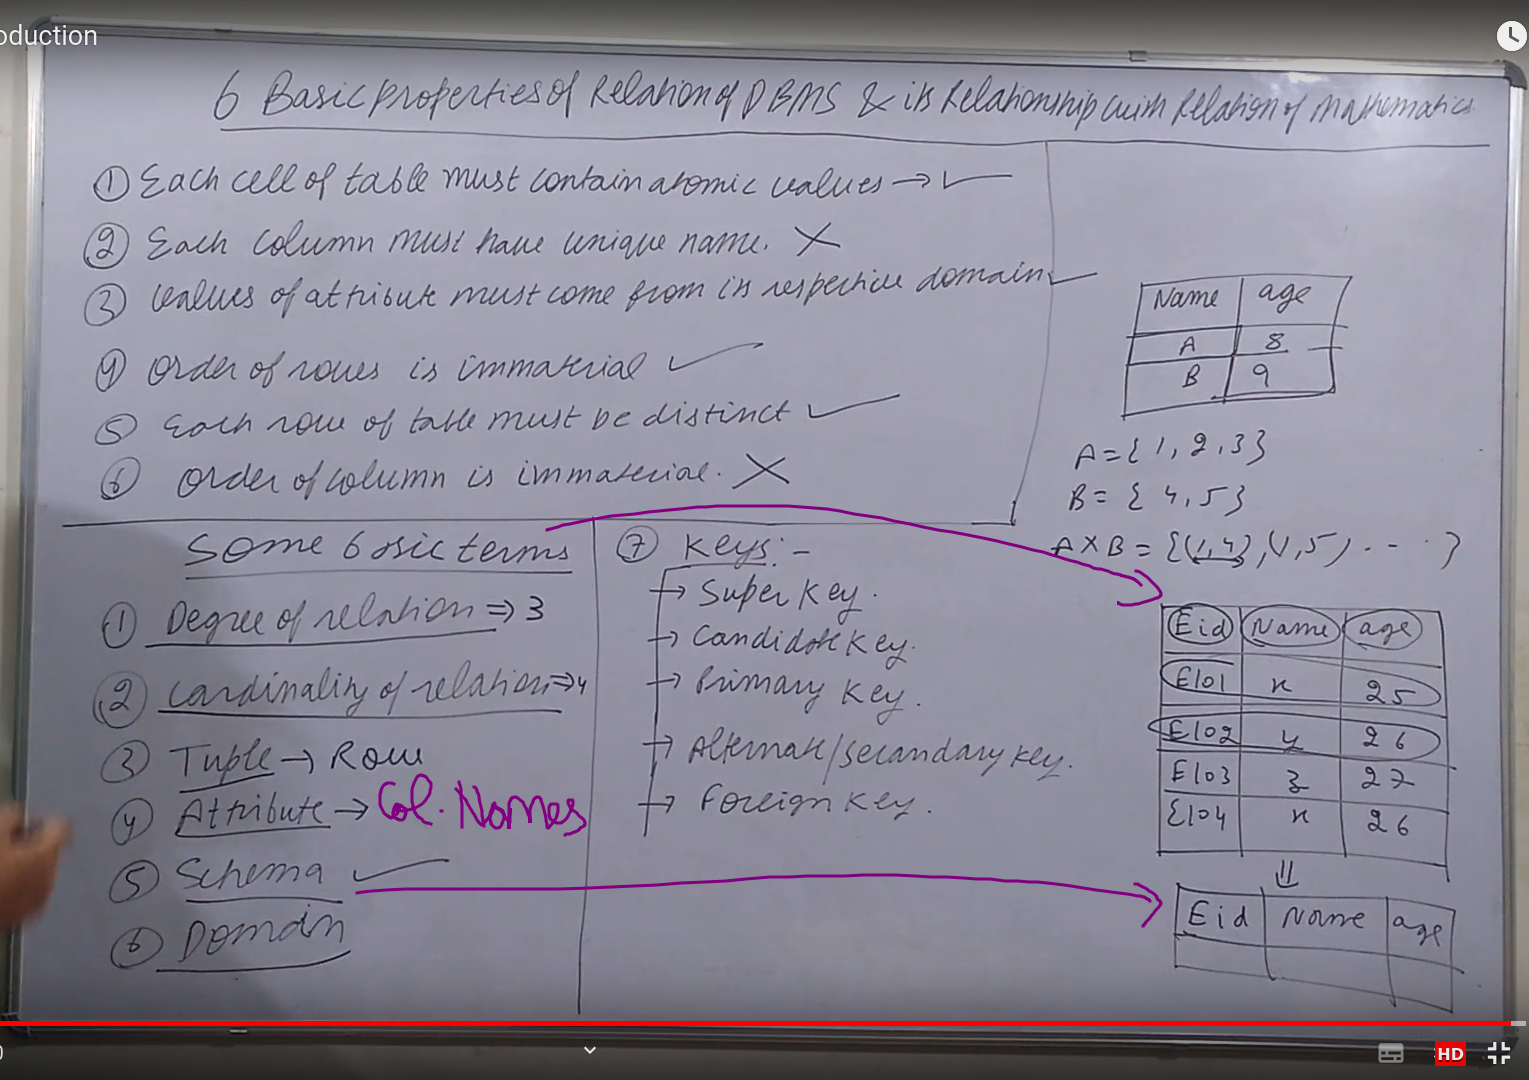 oduction
6 Basic properties of Relation of DBMS & its Relationship with Relation of Mathematics
① Each cell of table must contain atomic values → ✓
② Each column must have unique name. ✗
③ Values of attribute must come from its respective domain ✓
④ Order of rows is immaterial ✓
⑤ Each row of table must be distinct ✓
⑥ Order of column is immaterial. ✗
Name age
A 8
B 9
A = {1, 2, 3}
B = {4, 5}
A X B = {(1,4), (1,5) - - - }
Some basic terms
① Degree of relation ⇒ 3
② Cardinality of relation ⇒ 4
③ Tuple → Row
④ Attribute → Col. Names
⑤ Schema ✓
⑥ Domain
⑦ Keys: -
→ Super Key.
→ Candidate Key.
→ Primary Key.
→ Alternate/Secondary Key.
→ Foreign Key.
Eid Name age
E101 x 25
E102 y 26
E103 z 27
E104 x 26
⇓
Eid Name age
HD